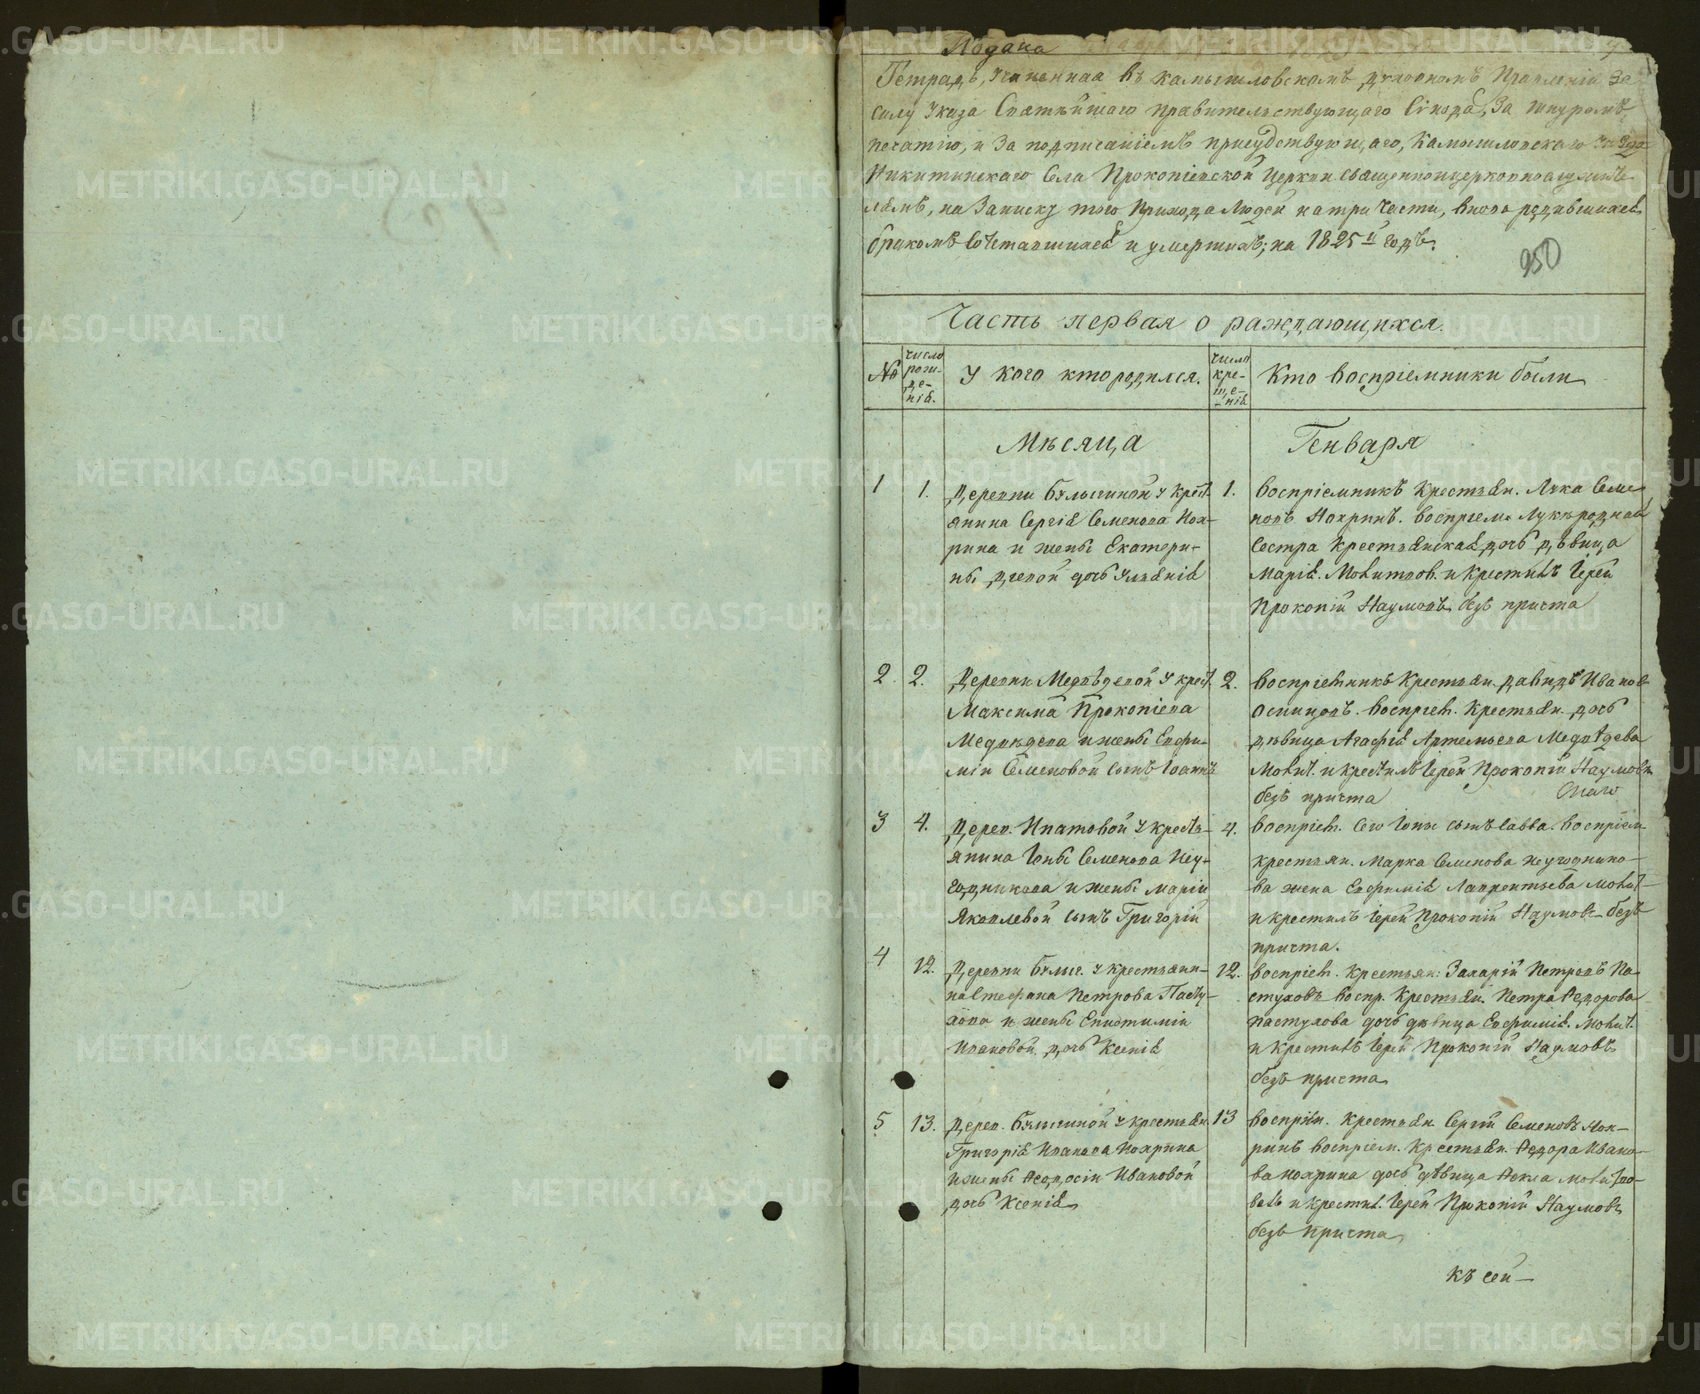 Подана
Тетрадь, учиненная въ Камышловскомъ духовномъ Правленіи за
силу Указа Святѣйшаго Правительствующаго Сѵнода, за шнуромъ,
печатію, и за подписаніемъ присудствующаго, Камышловскаго уезда
Никитинскаго Села Прокопіевской Церкви священноцерковнослужите-
лямъ, на записку того прихода людей на три части, вновь родившихся
бракомъ сочетавшихся и умершихъ; на 1825й годъ.
950
Часть первая о раждающихся.
№
число рож-де-нія.
У кого кто родился.
число кре-ще-нія
Кто воспріемники были
Мѣсяца Генваря
1 1. Деревни у крест-
янина Сергія Семенова Нох-
рина и жены Екатери-
ны дочь Уліянія
1. воспріемникъ Крестьян. Лука Семе-
новъ Нохринъ. воспріем. Луки родная
сестра крестьянская дочь дѣвица
Марія. Молитвов. и крестилъ Іерей
Прокопій Наумовъ безъ причта
2 2. Деревни Медвѣдевой у крест.
Максима Прокопіева
Медвѣдева и жены Евфи-
міи Семеновой сынъ Іоаннъ
2. воспріемникъ Крестьян. Давидъ Иванов
Осинцовъ. воспріем. Крестьян. дочь
дѣвица Агафія Артемьева Медвѣдева
Молит. и крестилъ Іерей Прокопій Наумовъ
безъ причта
3 4. Дерев. Ипатовой у кресть-
янина Іоны Семенова Неу-
годникова и жены Маріи
Яковлевой сынъ Григорій
4. воспріем. Сего Іоны сынъ Савва. воспріем.
крестьян. Марка Семенова Неугоднико-
ва жена Евфимія Лаврентьева молит-
и крестилъ Іерей Прокопій Наумовъ безъ
причта.
4 12. Деревни у крестьяни-
на Стефана Петрова Пасту-
хова и жены Епистиміи
Ивановой дочь Ксенія
12. воспріем. Крестьян: Захарій Петровъ Па-
стуховъ воспр. Крестьян. Петра Ѳедорова
Пастухова дочь дѣвица Евфимія. Молит.
и крестилъ Іерей Прокопій Наумовъ
безъ причта
5 13. Дерев. у крестьян.
Григорія Иванова Нохрина
и жены Ѳеодосіи Ивановой
дочь Ксенія
13 воспріем. Крестьян Сергій Семеновъ Нох-
ринъ воспріем. Крестьян. Ѳедора Ивано-
ва Нохрина дочь дѣвица Ѳекла молитво-
валъ и крестил. Іерей Прокопій Наумовъ
безъ причта
къ сей
METRIKI.GASO-URAL.RU